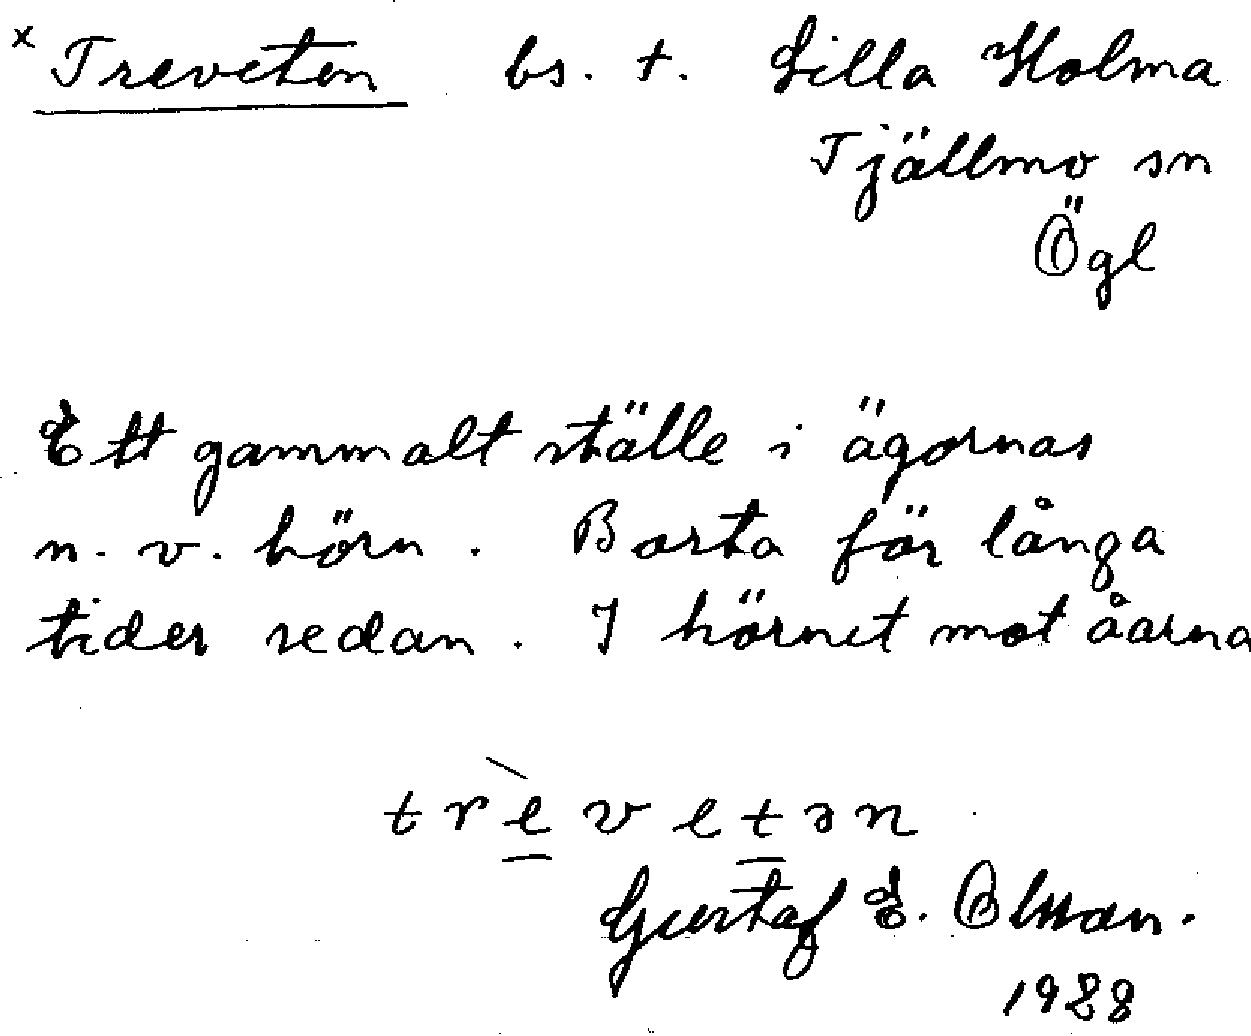 x Treveten bs. t. Lilla Holma
Tjällmo sn
Ögl
Ett gammalt ställe i ägornas
n. v. hörn. Borta för långa
tider sedan. I hörnet mot åarna
trèvetən
Gustaf E. Olsson.
1928